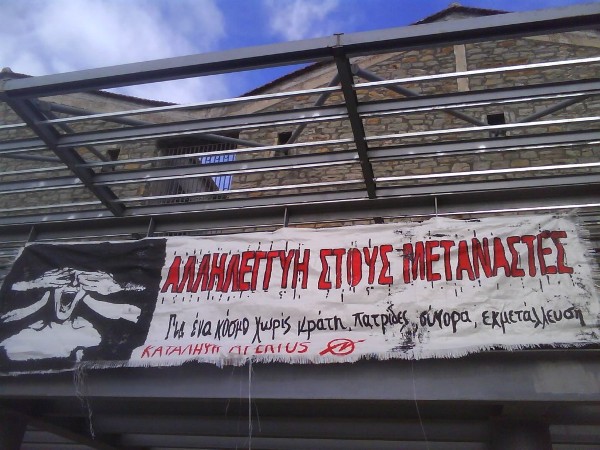 ΑΛΛΗΛΕΓΓΥΗ ΣΤΟΥΣ ΜΕΤΑΝΑΣΤΕΣ
Για ένα κόσμο χωρίς κράτη, πατρίδες, σύνορα, εκμετάλλευση
ΚΑΤΑΛΗΨΗ APERTUS